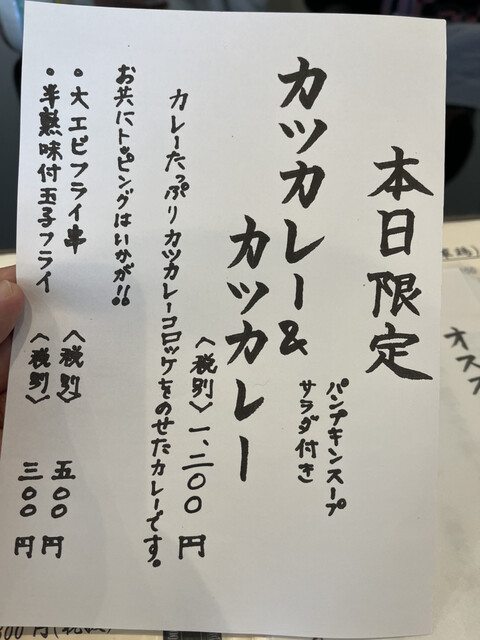 本日限定
カツカレー&
カツカレー
パンプキンスープ
サラダ付き
〈税別〉一、二〇〇円
カレーたっぷりカツカレーコロッケをのせたカレーです。
お共にトッピングはいかが!!
・大エビフライ串 〈税別〉 五〇〇円
・半熟味付玉子フライ 〈税別〉 三〇〇円
オス